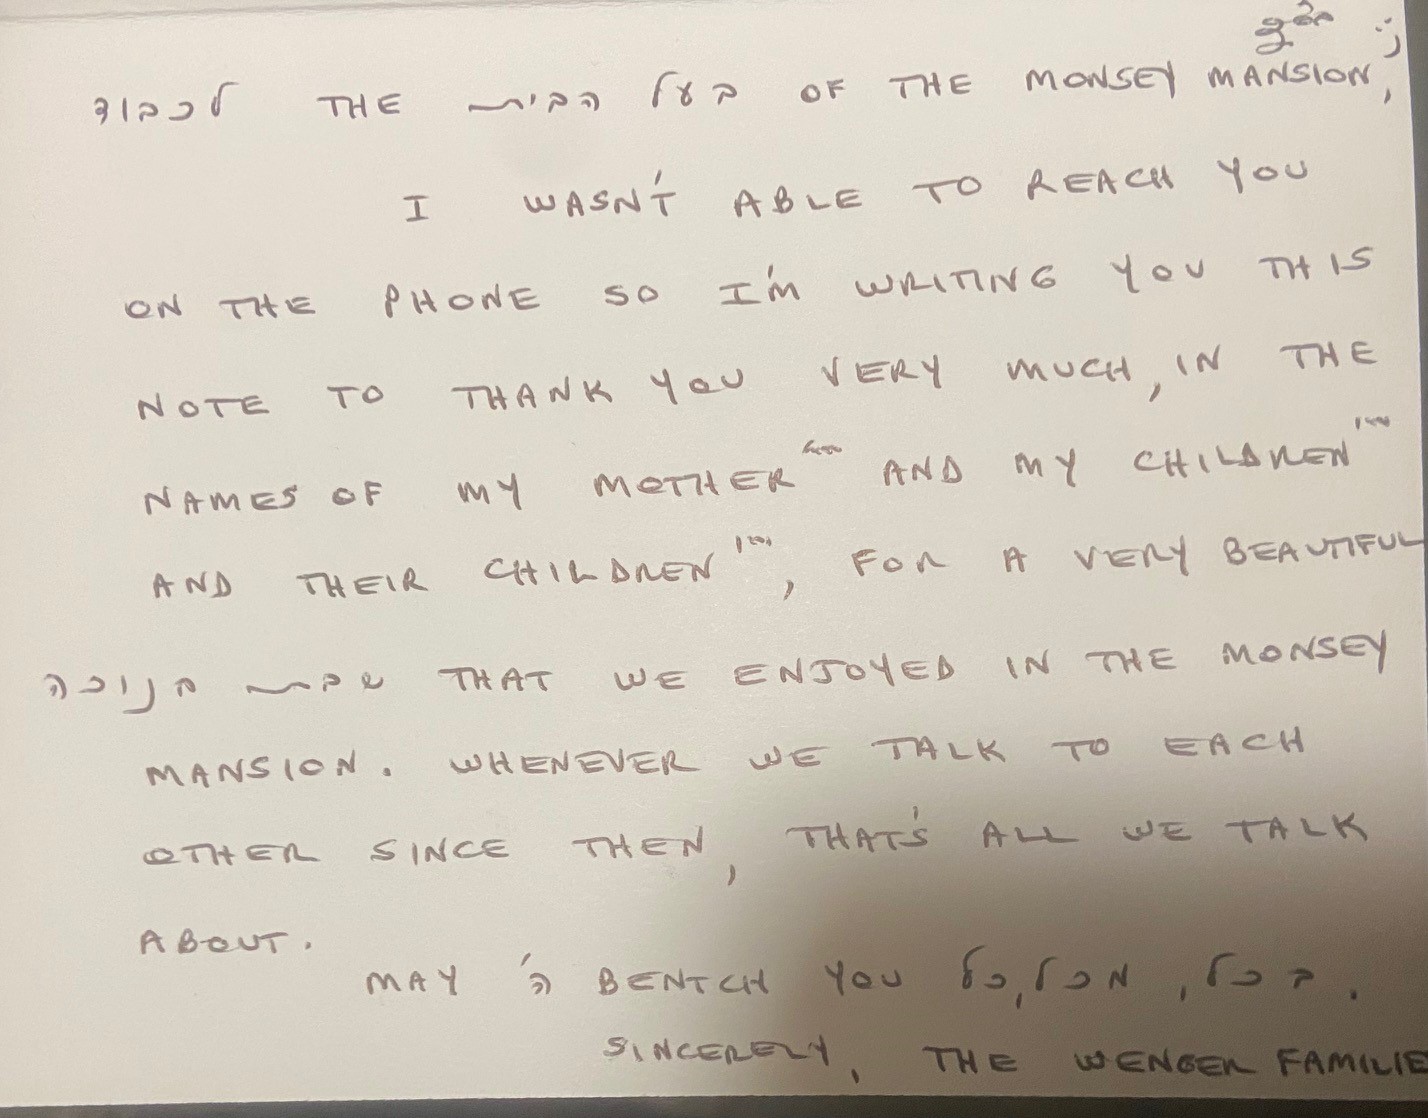 לכבוד THE בעל הבית OF THE MONSEY MANSION,
I WASN'T ABLE TO REACH YOU
ON THE PHONE SO I'M WRITING YOU THIS
NOTE TO THANK YOU VERY MUCH, IN THE
NAMES OF MY MOTHER AND MY CHILDREN
AND THEIR CHILDREN, FOR A VERY BEAUTIFUL
שבת חנוכה THAT WE ENJOYED IN THE MONSEY
MANSION. WHENEVER WE TALK TO EACH
OTHER SINCE THEN, THAT'S ALL WE TALK
ABOUT.
MAY ה' BENTCH YOU בכל, מכל, כל.
SINCERELY, THE WENGER FAMILIE